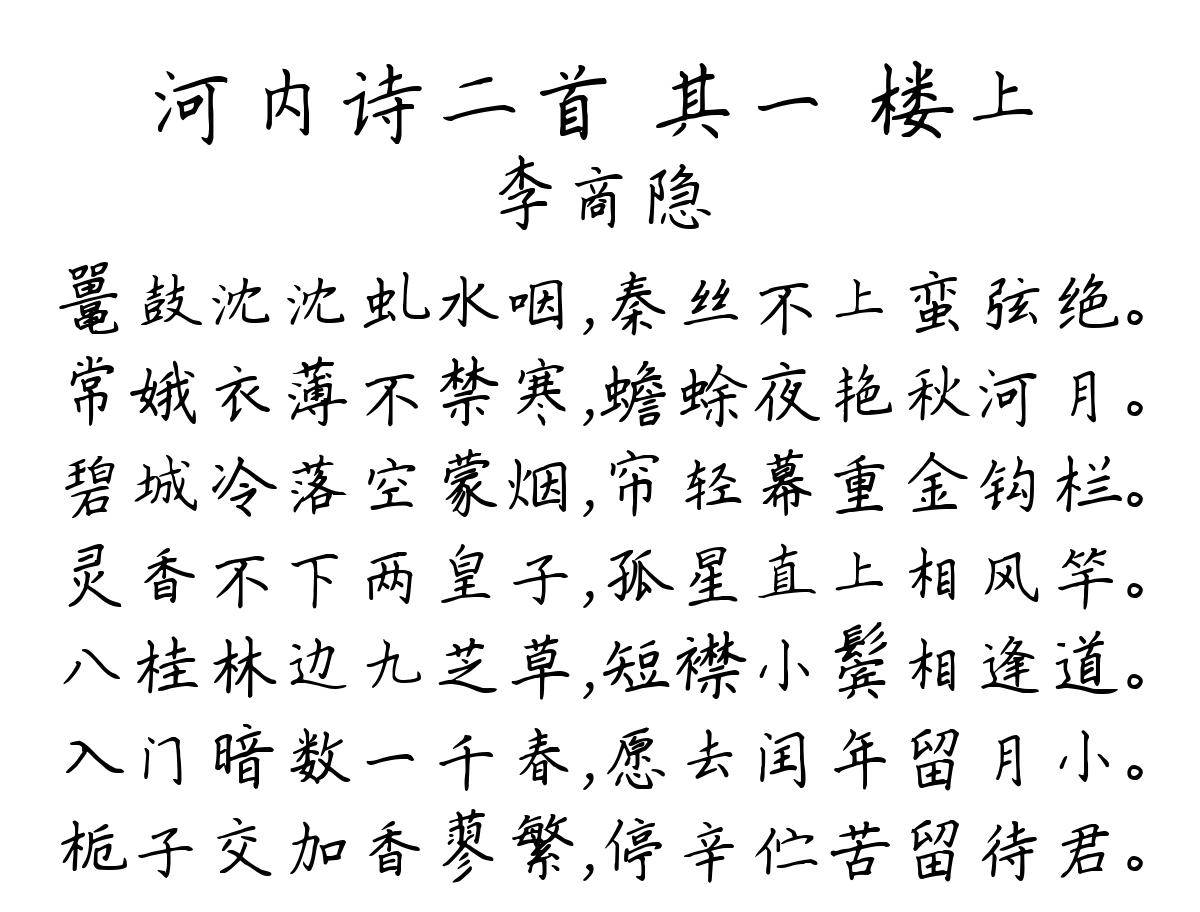 河内诗二首 其一 楼上
李商隐
鼍鼓沈沈虬水咽,秦丝不上蛮弦绝。
常娥衣薄不禁寒,蟾蜍夜艳秋河月。
碧城冷落空蒙烟,帘轻幕重金钩栏。
灵香不下两皇子,孤星直上相风竿。
八桂林边九芝草,短襟小鬓相逢道。
入门暗数一千春,愿去闰年留月小。
栀子交加香蓼繁,停辛伫苦留待君。